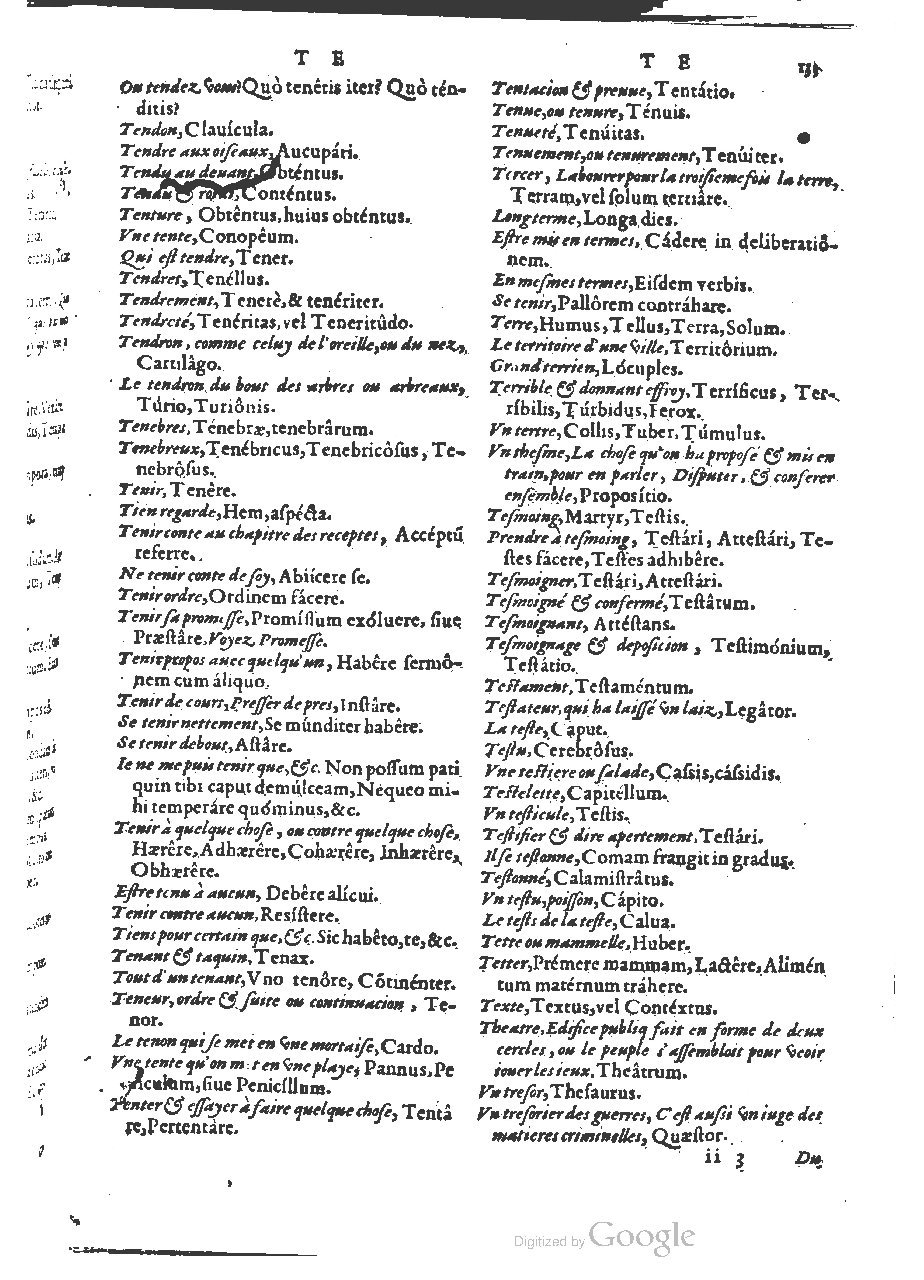 T E
Ou tendez vous? Quò tenêtis iter? Quò tén-
ditis?
Tendon, Clauícula.
Tendre aux oiseaux, Aucupári.
Tendu au deuant, Obténtus.
Tendu & Conténtus.
Tenture, Obtêntus, huius obténtus.
Vne tente, Conopêum.
Qui est tendre, Tener.
Tendret, Tenéllus.
Tendrement, Tenerè, & tenériter.
Tendreté, Tenéritas, vel Teneritûdo.
Tendron, comme celuy de l'oreille, ou du nez,
Cartilâgo.
Le tendron du bout des arbres ou arbreaux,
Túrio, Turiônis.
Tenebres, Ténebræ, tenebrârum.
Tenebreux, Tenébricus, Tenebricôsus, Te-
nebrôsus.
Tenir, Tenêre.
Tien regarde, Hem, aspécta.
Tenir conte au chapitre des receptes, Accéptũ
referre.
Ne tenir conte de soy, Abiícere se.
Tenir ordre, Ordinem fácere.
Tenir sa promesse, Promíssum exóluere, siue
Præstâre. Voyez Promesse.
Tenir propos auec quelqu'un, Habêre sermô-
nem cum áliquo.
Tenir de court, Presser de pres, Instâre.
Se tenir nettement, Se múnditer habêre.
Se tenir debout, Astâre.
Ie ne me puis tenir que, &c. Non possum pati
quin tibi caput demúlceam, Nequeo mi-
hi temperáre quóminus, &c.
Tenir à quelque chose, ou contre quelque chose,
Hærêre, Adhærêre, Cohærêre, Inhærêre,
Obhærêre.
Estre tenu à aucun, Debêre alícui.
Tenir contre aucun, Resístere.
Tiens pour certain que, &c. Sic habêto, te, &c.
Tenant & taquin, Tenax.
Tout d'un tenant, Vno tenôre, Cõtinénter.
Teneur, ordre & suite ou continuacion, Te-
nor.
Le tenon qui se met en vne mortaise, Cardo.
Vne tente qu'on met en vne playe, Pannus, Pe
niculum, siue Penicíllum.
Tenter & essayer à faire quelque chose, Tentâ
re, Pertentáre.
T E
Tentacion & preuue, Tentátio.
Tenue, ou tenure, Ténuis.
Tenueté, Tenúitas.
Tenuement, ou tenurement, Tenúiter.
Tercer, Labourer pour la troisieme fois la terre,
Terram, vel solum tertiâre.
Long terme, Longa dies.
Estre mis en termes, Cádere in deliberatiô-
nem.
En mesmes termes, Eisdem verbis.
Se tenir, Pallôrem contráhare.
Terre, Humus, Tellus, Terra, Solum.
Le territoire d'une ville, Territôrium.
Grand terrien, Lócuples.
Terrible & donnant effroy, Terríficus, Ter-
ríbilis, Túrbidus, Ferox.
Vn tertre, Collis, Tuber, Túmulus.
Vn thesme, La chose qu'on ha proposé & mis en
train, pour en parler, Disputer, & conferer
ensemble, Propositio.
Tesmoing, Martyr, Testis.
Prendre à tesmoing, Testári, Attestári, Te-
stes fácere, Testes adhibêre.
Tesmoigner, Testári, Attestári.
Tesmoigné & confermé, Testâtum.
Tesmoignant, Attéstans.
Tesmoignage & deposicion, Testimónium,
Testátio.
Testament, Testaméntum.
Testateur, qui ha laissé vn laiz, Legâtor.
La teste, Caput.
Testu, Cerebrôsus.
Vne testiere ou salade, Cassis, cássidis.
Testelette, Capitéllum.
Vn testicule, Testis.
Testifier & dire apertement, Testári.
Il se testonne, Comam frangit in gradus.
Testonné, Calamistrâtus.
Vn testu, poisson, Cápito.
Le tests de la teste, Calua.
Tette ou mammelle, Huber.
Tetter, Prémere mammam, Lactêre, Alimén
tum matérnum tráhere.
Texte, Textus, vel Contéxtus.
Theatre, Edifice publiq fait en forme de deux
cercles, ou le peuple s'assembloit pour veoir
iouer les ieux, Theâtrum.
Vn tresor, Thesaurus.
Vn tresorier des guerres, C'est aussi vn iuge des
matieres criminelles, Quæstor.
ii 3 Du
Digitized by Google